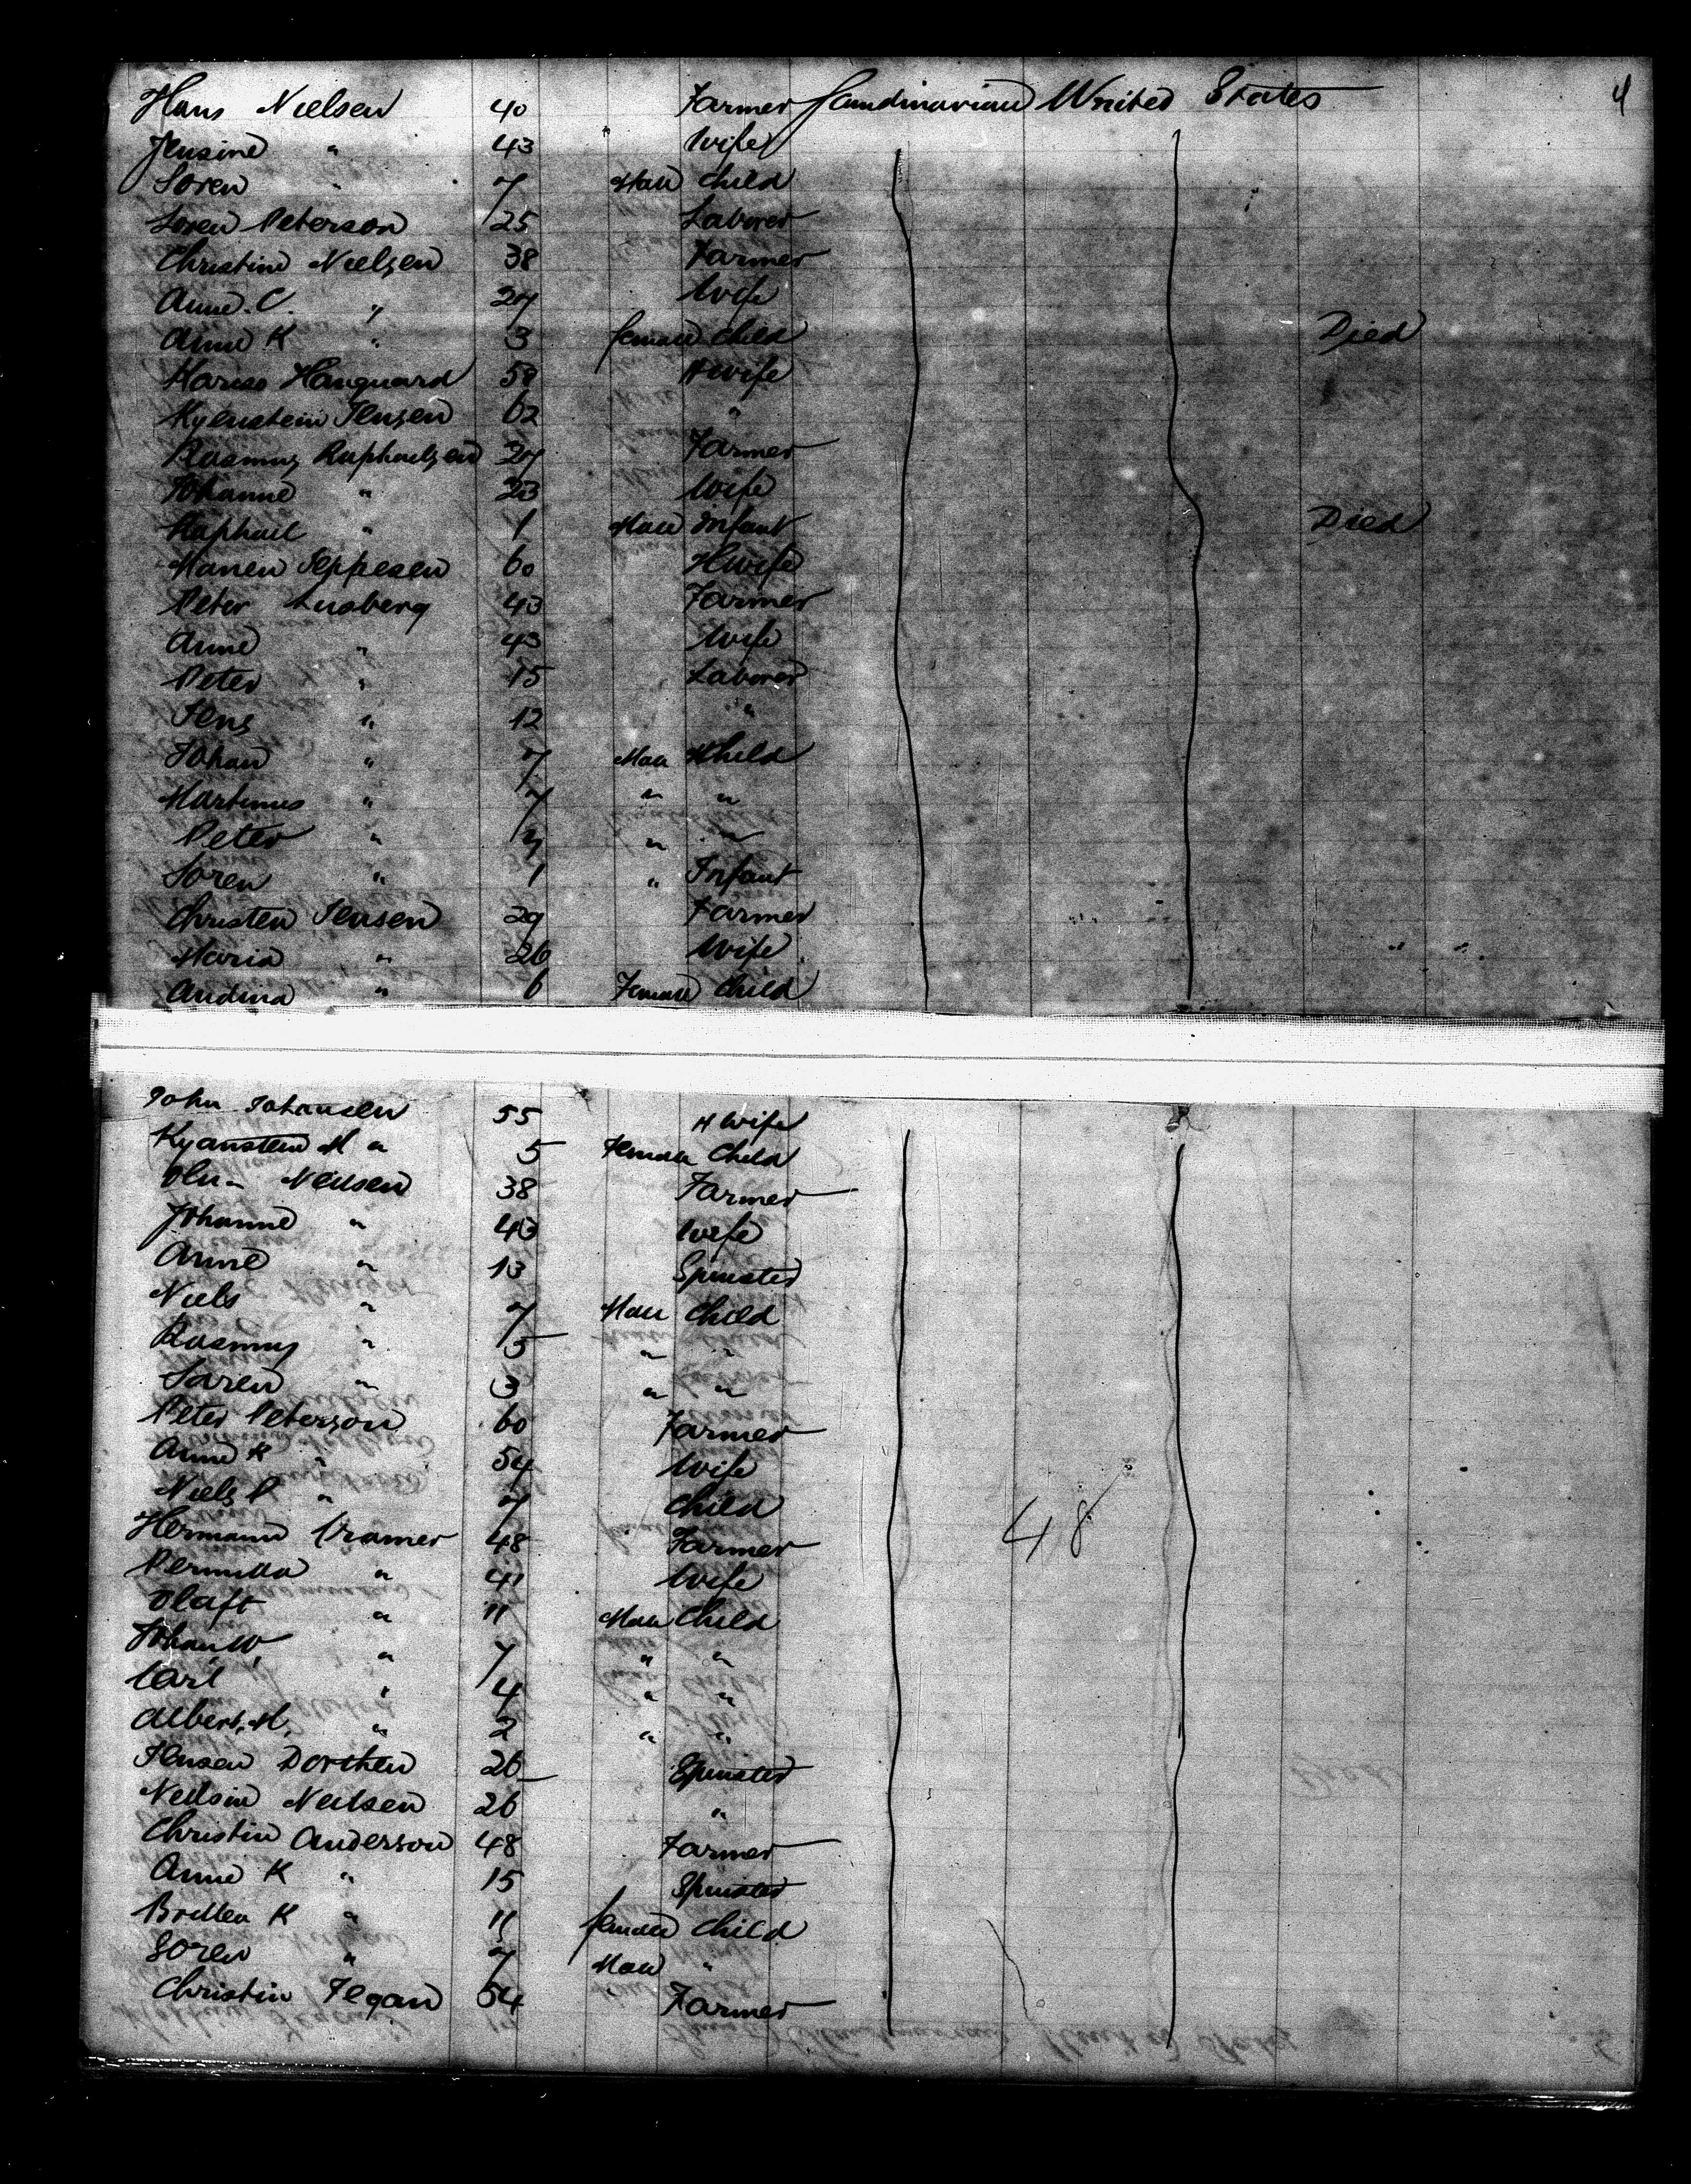 Hans Nielsen 40 Farmer Scandinavian United States 4
Jensine " 43 Wife
Soren " 7 Male Child
Soren Peterson 25 Laborer
Christine Nielsen 38 Farmer
Anne. C. " 27 Wife
Anne K " 3 female Child Died
Karies Hauguard 58 H wife
Kyenstein Jensen 62 "
Rasmus Raphaelsen 27 Farmer
Johanne " 23 Wife
Raphael " 1 Male Infant Died
Maren Jeppesen 60 H wife
Peter Lusberg 43 Farmer
Anne " 43 Wife
Peter " 15 Laborer
Jens " 12 "
Johan " 7 Male Child
Martinus " 7 " "
Peter " " "
Soren " 1 " Infant
Christen Jensen 29 Farmer
Maria " 26 Wife
Andina " 6 Female Child
John Johansen 55 H wife
Kyansten M " 5 Female Child
Neilsen 38 Farmer
Johanne " 43 Wife
Anne " 13 Spinster
Niels " 7 Male Child
Rasmus " 5 " "
Saren " 3 " "
Peter Peterson 60 Farmer
Anne K " 54 Wife
Niels P " 7 Child
Hermann Cramer 48 Farmer 48
Pernilla " 41 Wife
Olaft " 11 Male Child
Johan, W, " 7 " "
Carl " 4 " "
Albert, M, " 2 " "
Jensen Dorthea 26 Spinster
Neilsin Neilsen 26 "
Christin Anderson 48 Farmer
Anne K " 15 Spinster
Britten K " 11 female Child
Soren " 7 Male "
Christin Fegan 54 Farmer